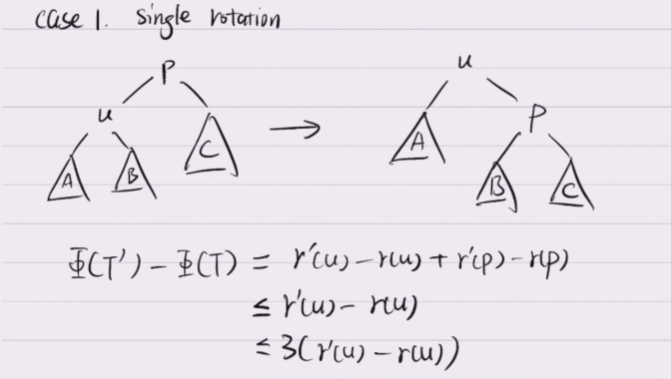 case 1. single rotation
P
u
u
A
B
C
A
P
B
C
Φ(T') - Φ(T) = r'(u) - r(u) + r'(p) - r(p)
≤ r'(u) - r(u)
≤ 3(r'(u) - r(u))